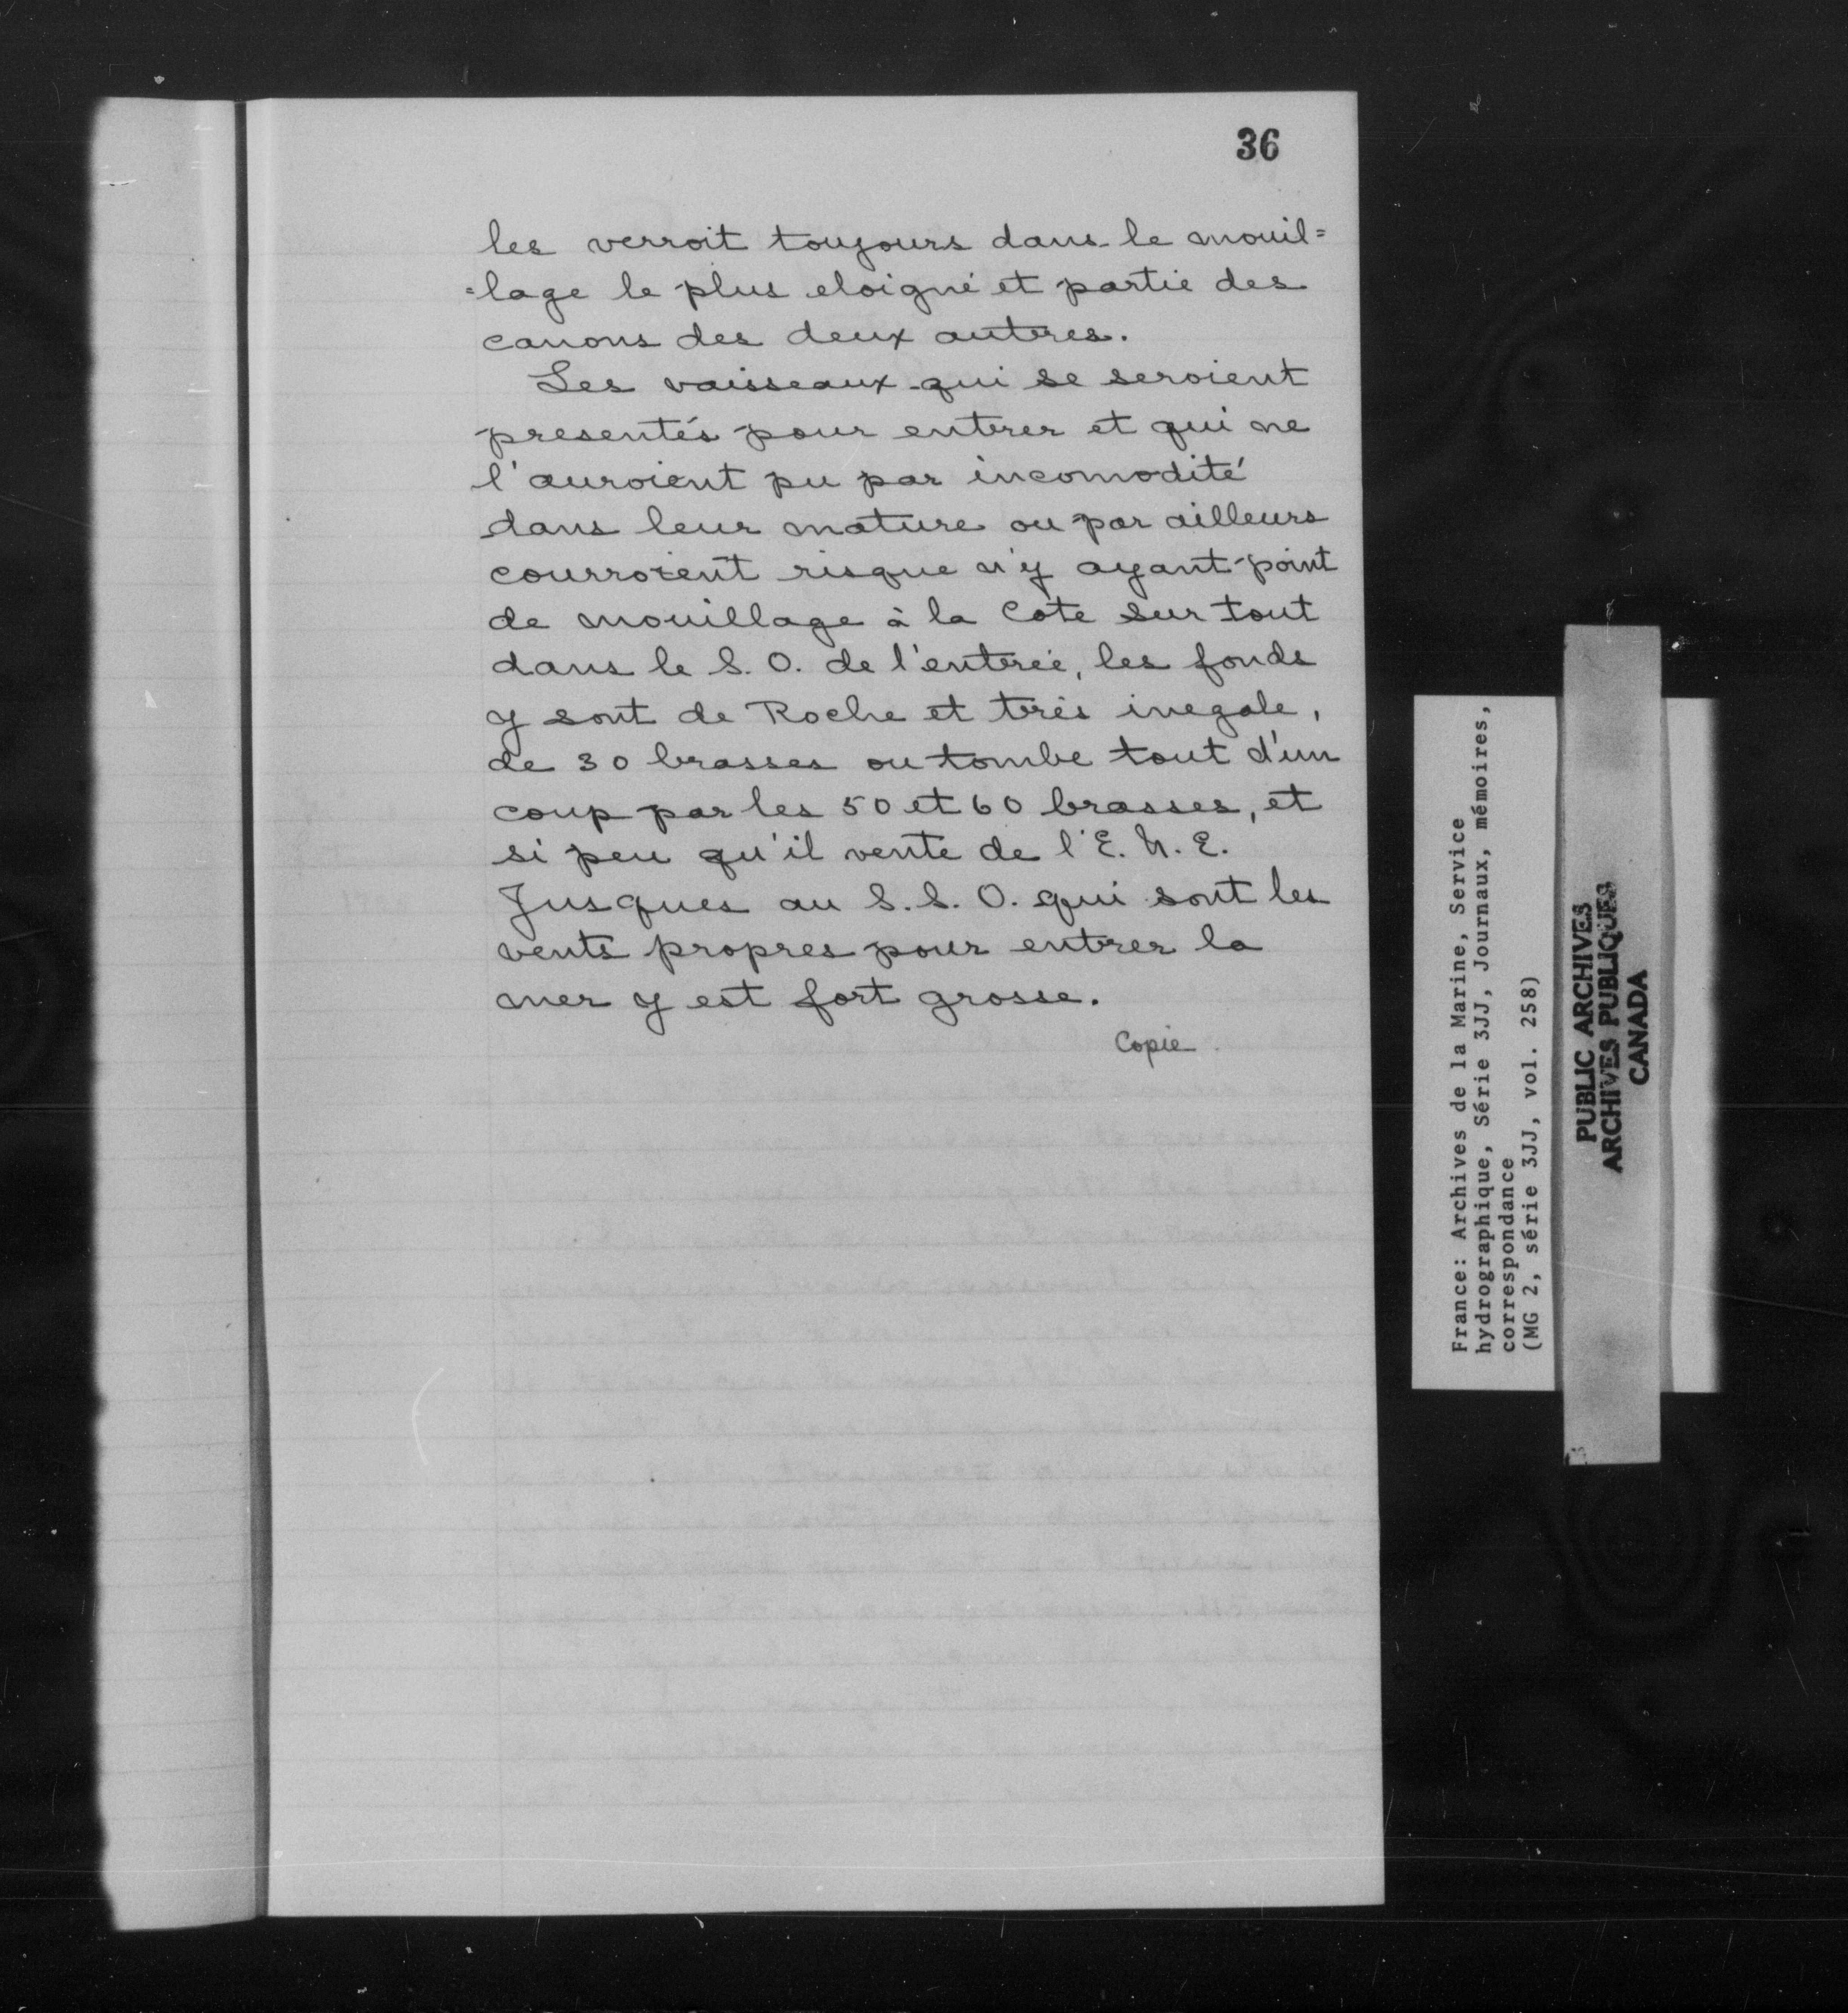 36
les verroit toujours dans le mouil=
=lage le plus eloigné et partie des
canons des deux autres.
Les vaisseaux qui se seroient
presentés pour entrer et qui ne
l'auroient pu par incomodité
dans leur mature ou par ailleurs
courroient risque n'y ayant point
de mouillage à la Cote sur tout
dans le S. O. de l'entrée, les fonds
y sont de Roche et très inegale,
de 30 brasses on tombe tout d'un
coup par les 50 et 60 brasses, et
si peu qu'il vente de l'E. N. E.
Jusques au S. S. O. qui sont les
vents propres pour entrer la
mer y est fort grosse.
Copie.
France: Archives de la Marine, Service
hydrographique, Série 3JJ, Journaux, mémoires,
correspondance
(MG 2, série 3JJ, vol. 258)
PUBLIC ARCHIVES
ARCHIVES PUBLIQUES
CANADA